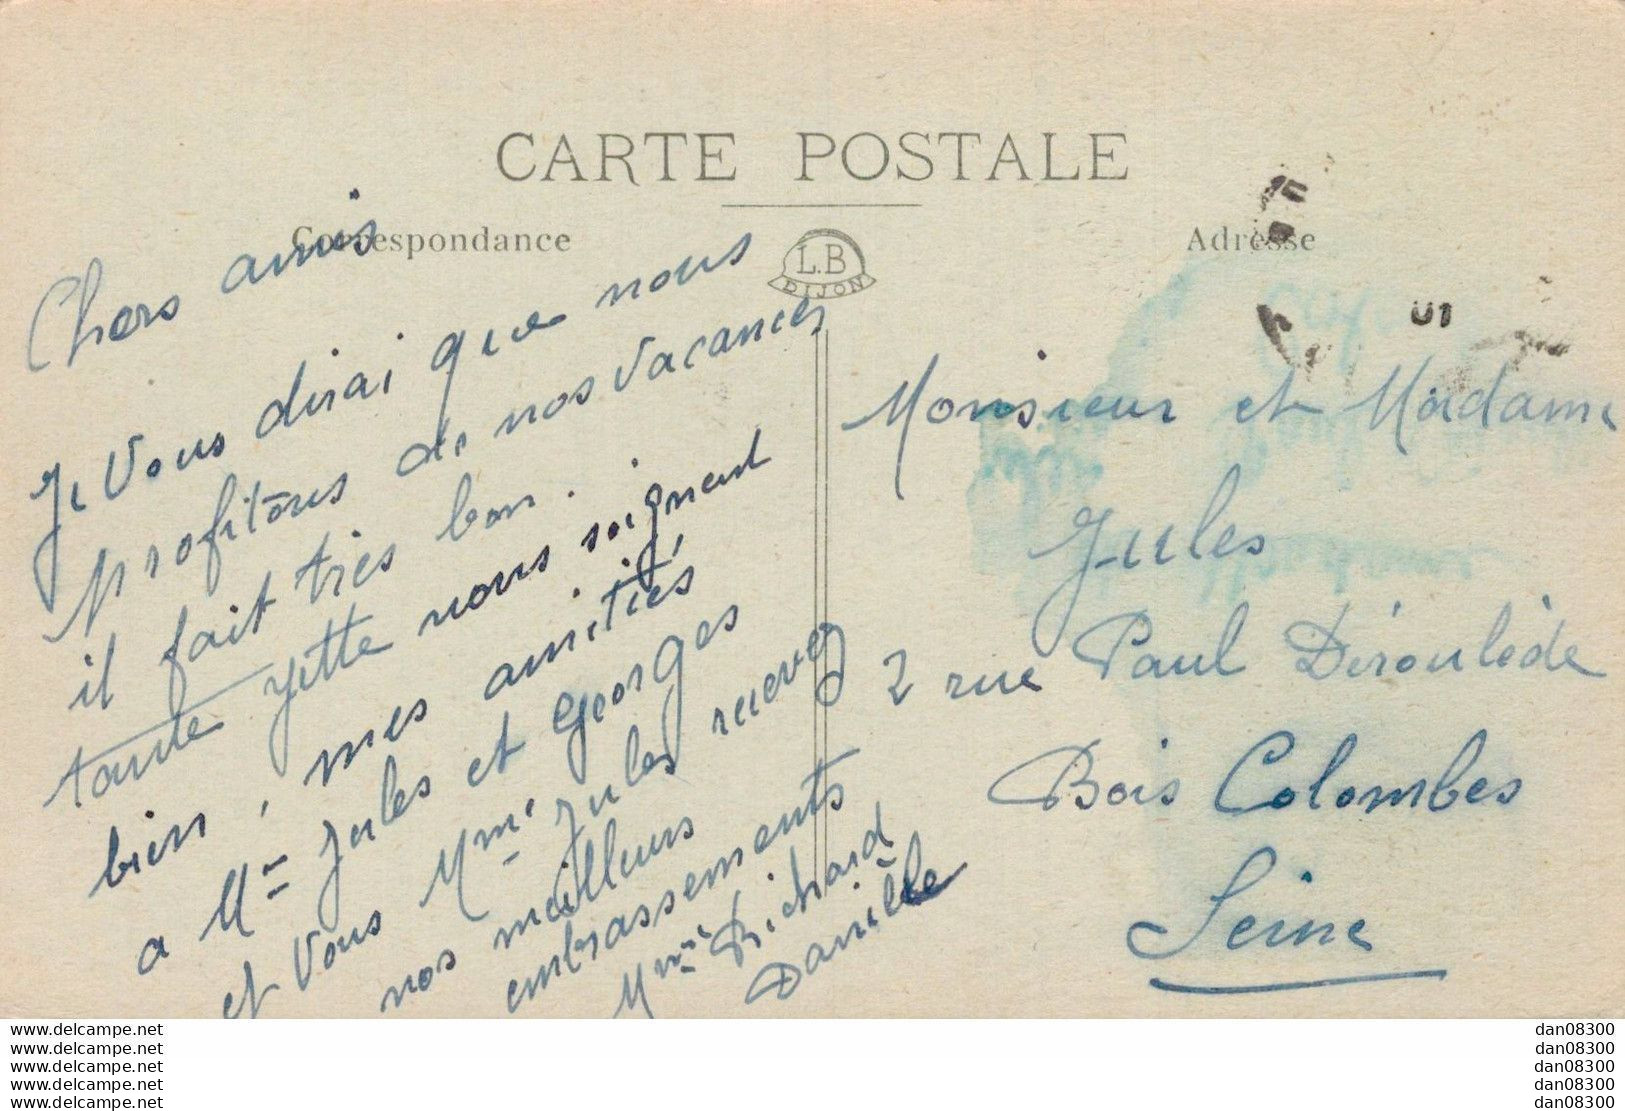 CARTE POSTALE
Correspondance
Adresse
L.B
DIJON
Chers amis
Je Vous dirai que nous
profitons de nos vacances
il fait très bon.
tante yette nous soignent
bien, mes amitiés
a Mr Jules et Georges
et Vous Mme Jules recevez
nos meilleurs
embrassements
Mme Richard
Danièle
01
Monsieur et Madame
Jules
2 rue Paul Déroulède
Bois Colombes
Seine
www.delcampe.net
www.delcampe.net
www.delcampe.net
www.delcampe.net
www.delcampe.net
dan08300
dan08300
dan08300
dan08300
dan08300